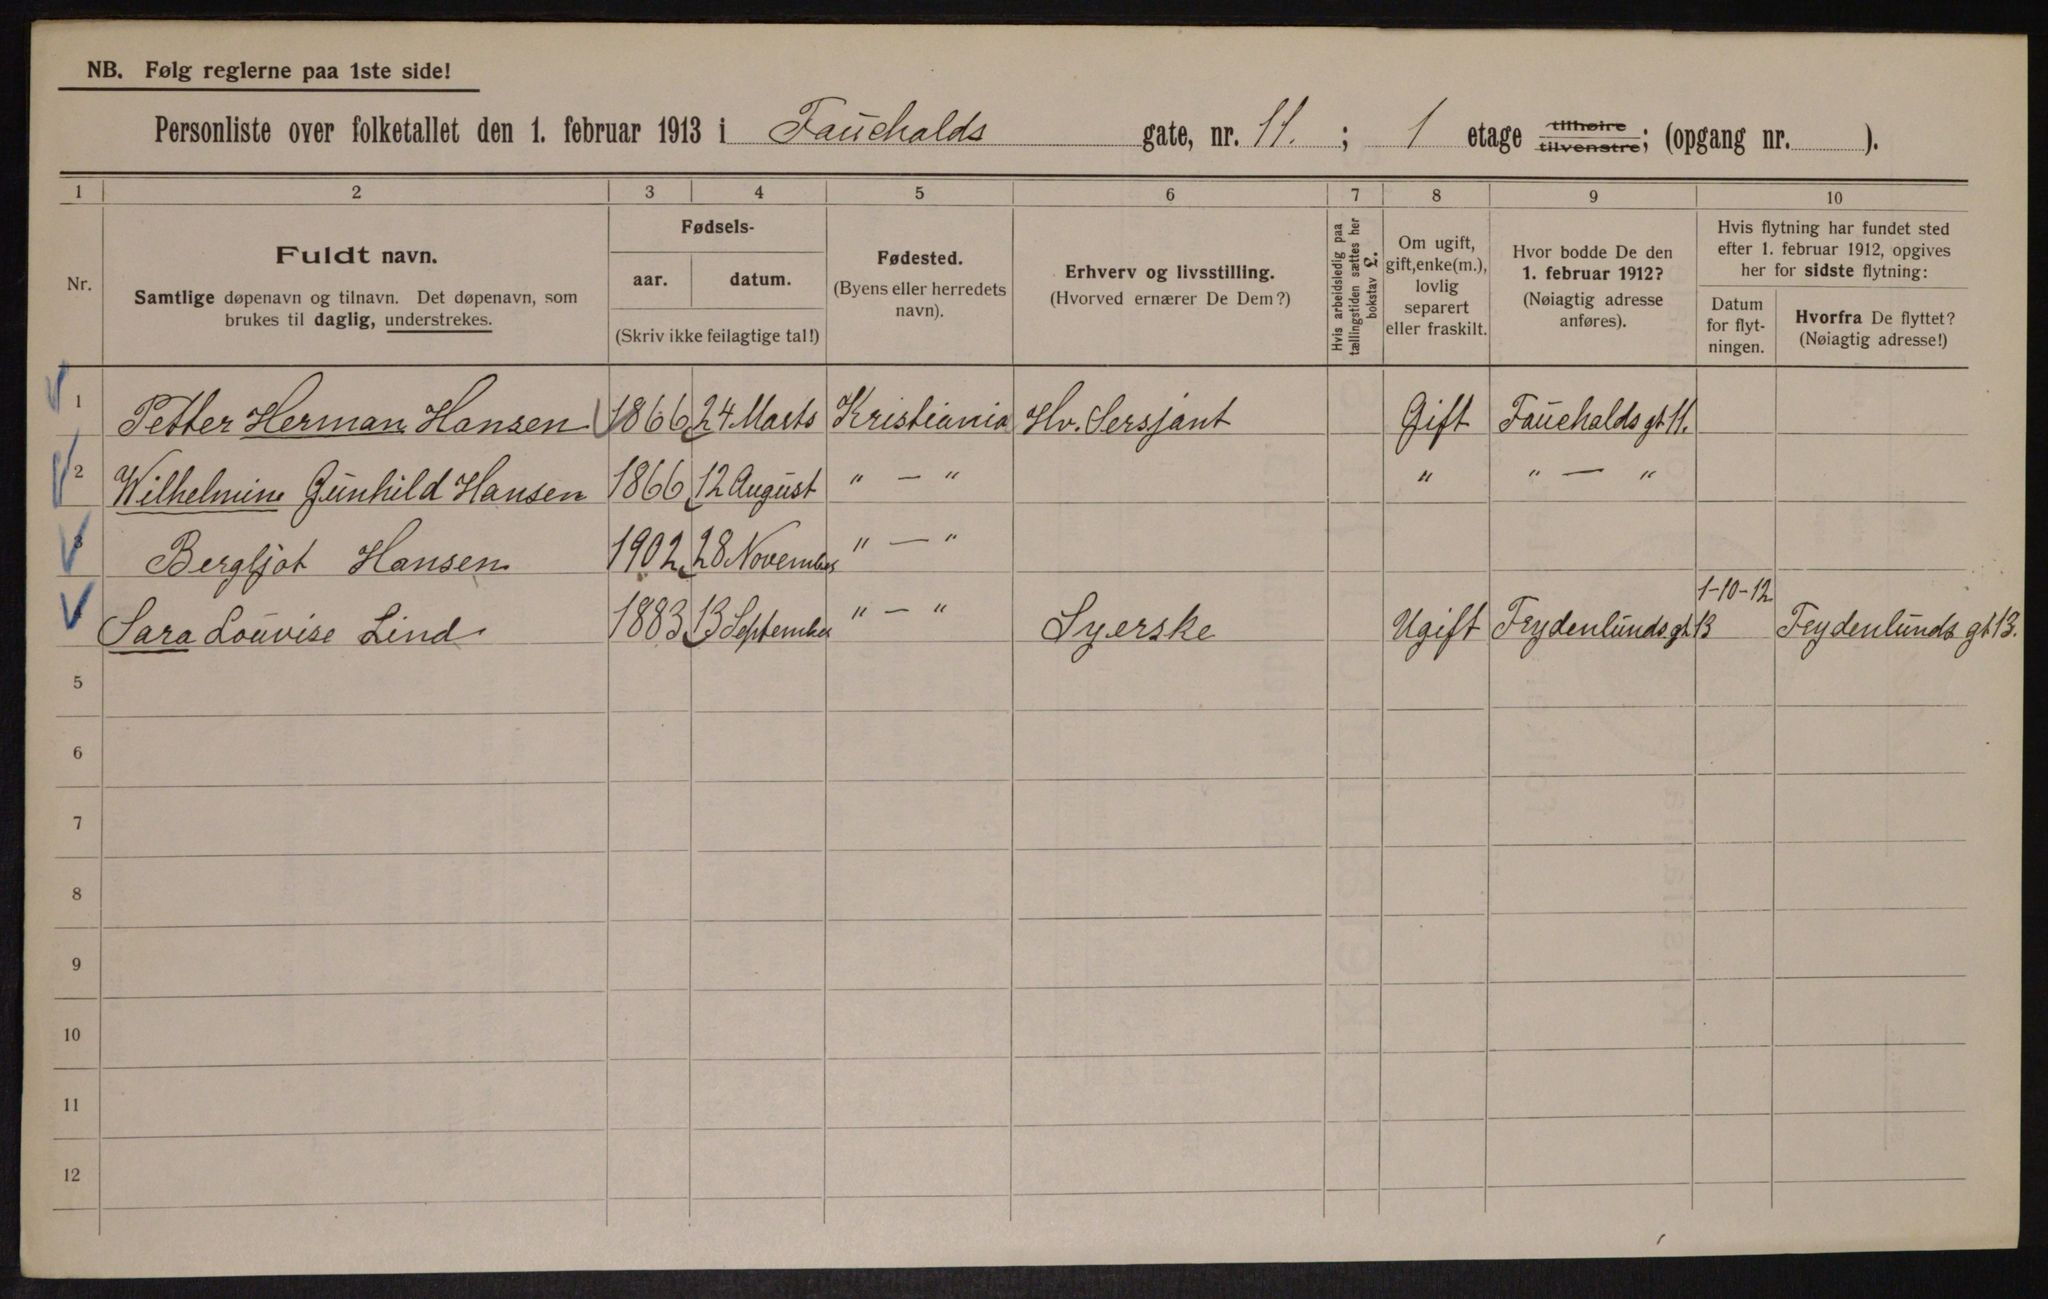 NB. Følg reglerne paa 1ste side!
Personliste over folketallet den 1. februar 1913 i Fauehalds gate, nr. 11. ; 1 etage tilhøire tilvenstre; (opgang nr. ).
1 2 3 4 5 6 7 8 9 10
Nr.
Fuldt navn.
Samtlige døpenavn og tilnavn. Det døpenavn, som
brukes til daglig, understrekes.
Fødsels-
aar. datum.
(Skriv ikke feilagtige tal!)
Fødested.
(Byens eller herredets
navn).
Erhverv og livsstilling.
(Hvorved ernærer De Dem?)
Hvis arbeidsledig paa
tællingstiden sættes her
bokstav L.
Om ugift,
gift, enke(m.),
lovlig
separert
eller fraskilt.
Hvor bodde De den
1. februar 1912?
(Nøiagtig adresse
anføres).
Hvis flytning har fundet sted
efter 1. februar 1912, opgives
her for sidste flytning:
Datum
for flyt-
ningen.
Hvorfra De flyttet?
(Nøiagtig adresse!)
1 Petter Herman Hansen 1866 24 Marts Kristiania Hv. Sersjant Gift Fauehalds gt 11.
2 Wilhelmine Gunhild Hansen 1866 12 August " — " " " — "
3 Bergljot Hansen 1902 28 November " — "
Sara Louvise Lind 1883 13 September " — " Syerske Ugift Frydenlunds gt 13 1-10-12 Frydenlunds gt 13.
5
6
7
8
9
10
11
12